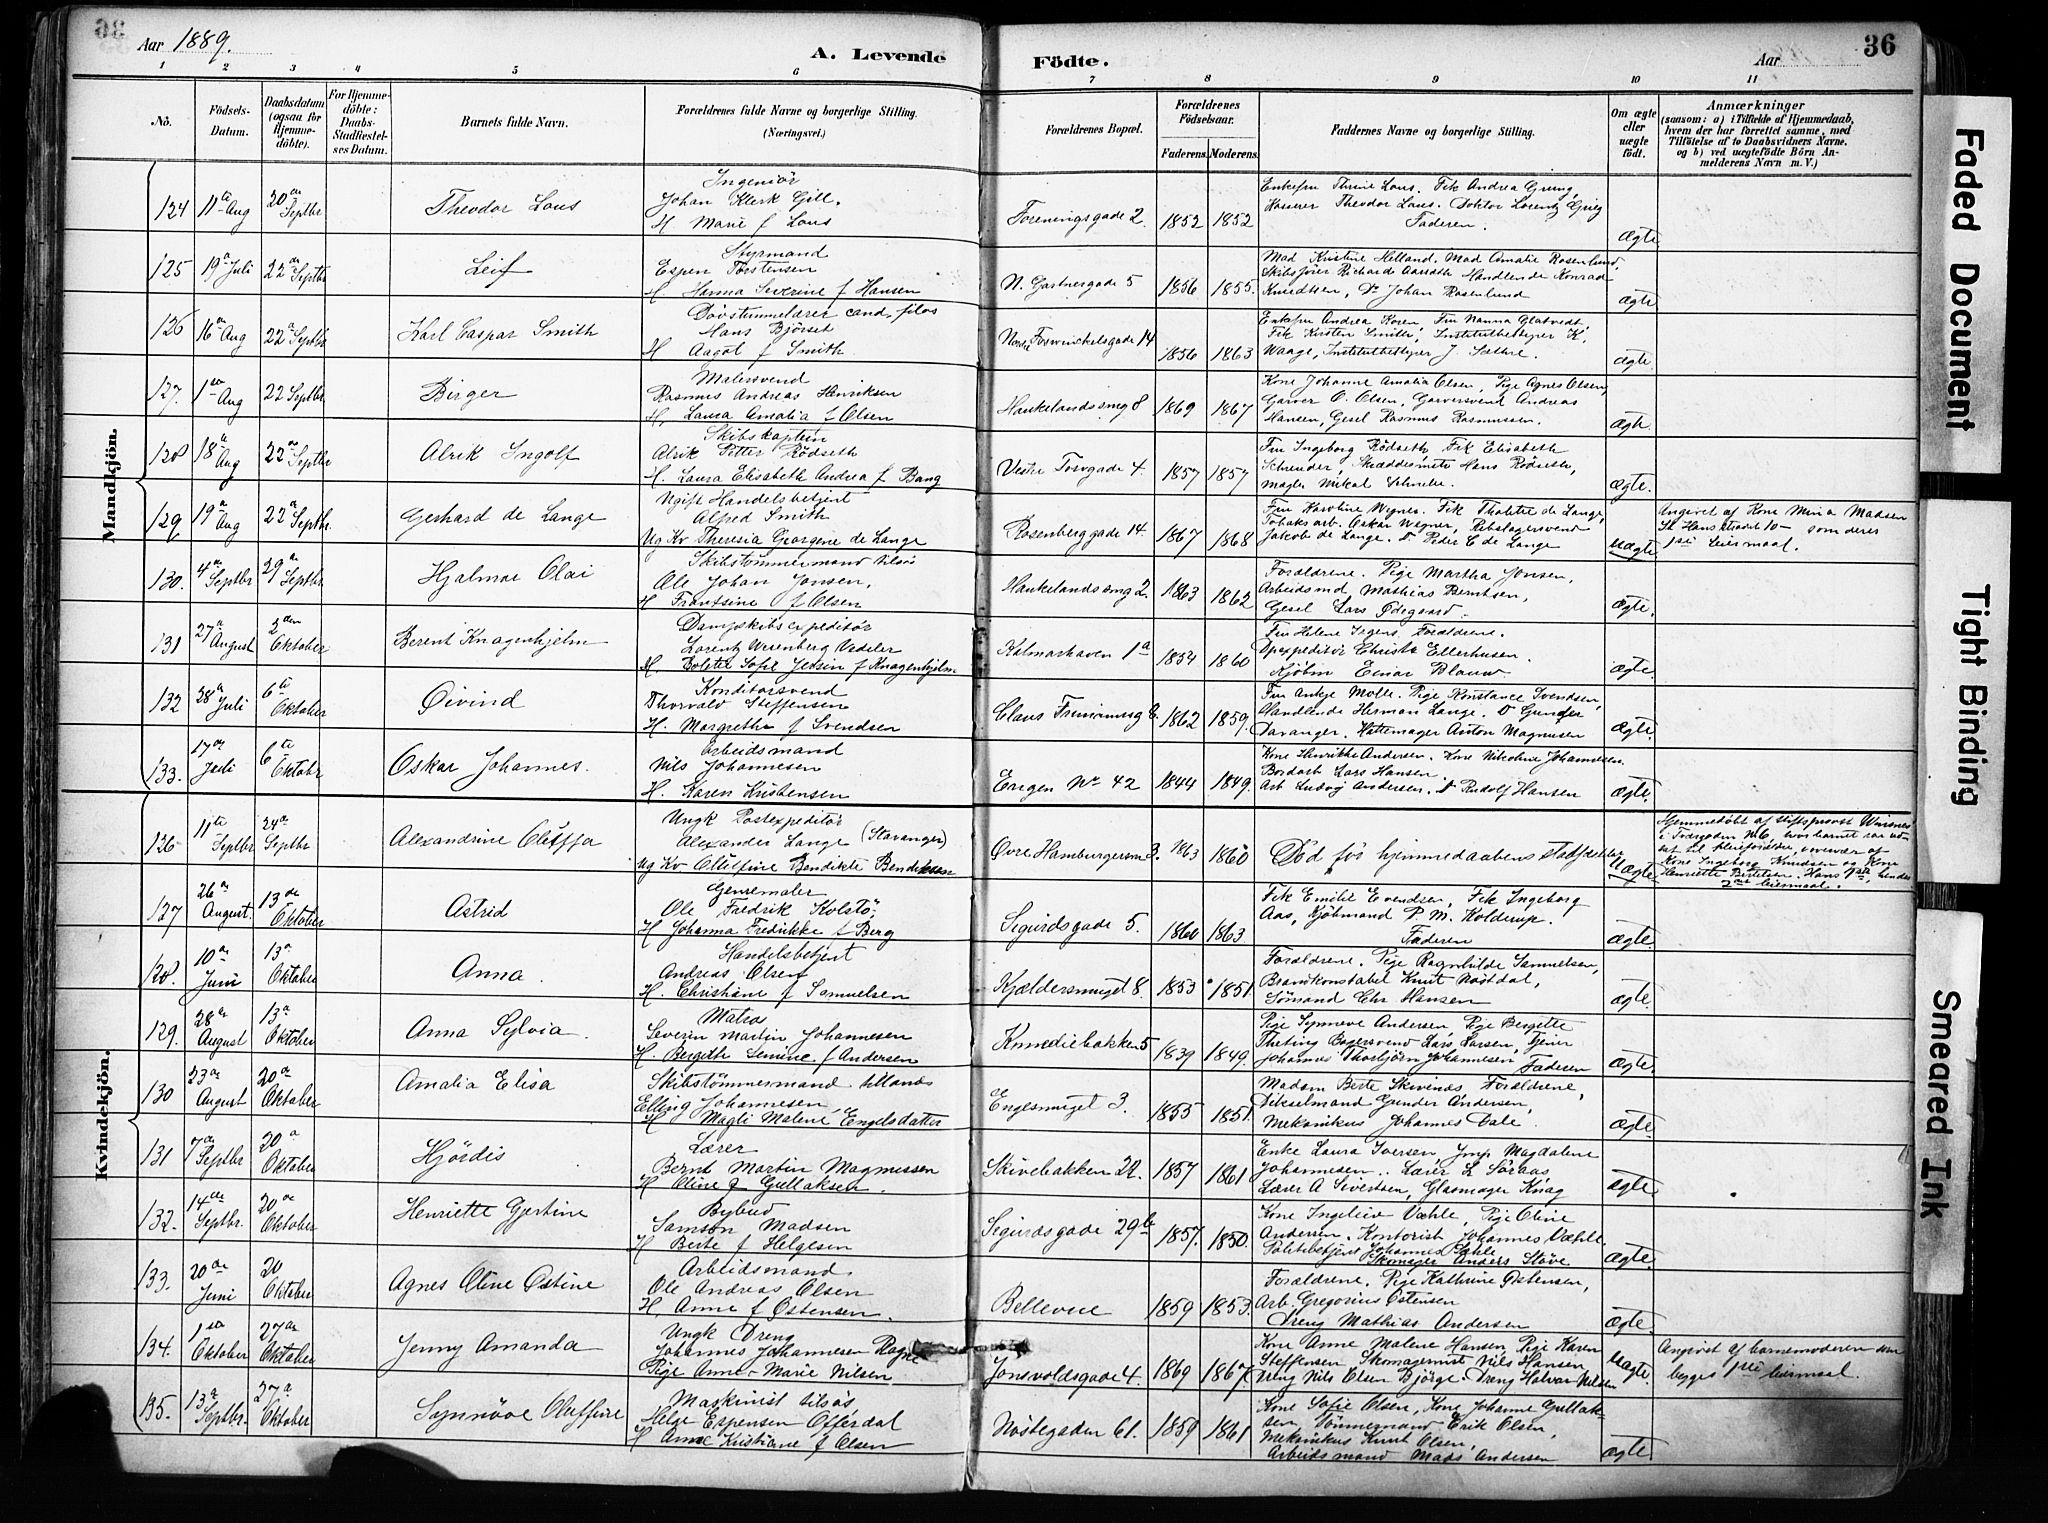 Aar 1889.
A. Levende Födte.
Aar
36
1 2 3 4 5 6 7 8 9 10 11
Nô.
Födsels-Datum.
Daabsdatum (ogsaa for Hjemmedöbte).
For Hjemmedöbte: Daabs-Stadfæstelses Datum.
Barnets fulde Navn.
Forældrenes fulde Navne og borgerlige Stilling. (Næringsvei.)
Forældrenes Bopæl.
Forældrenes Födselsaar.
Faderens. Moderens.
Faddernes Navne og borgerlige Stilling.
Om ægte eller uægte födt.
Anmærkninger
(saasom: a) i Tilfælde af Hjemmedaab, hvem der har forrettet samme, med Tilföielse af to Daabsvidners Navne, og b) ved uægtefödte Börn Anmelderens Navn m. V.)
Mandkjön.
124 11te Aug 20de Septbr Theodor Lous
Ingeniör
Johan Klerk Gill.
H. Marie f Lous
Foreningsgade 2. 1852 1852
Enkefru Thrine Lous. Frk Andrea Grung
Theodor Lous. Doktor Lorentz Grieg
Faderen.
Ægte
125 19de Juli 22de Septbr Leif
Styrmand
Espen Torstensen
H. Hanna Severine f Hansen
N. Gartnergade 5 1856 1855.
Mad Kristine Helland. Mad Amalie Rosenlund,
Skibsförer Richard Aarseth Handlende Konrad
Knudtsen, Do Johan Rosenlund
Ægte
126 16de Aug 22de Septbr Karl Caspar Smith
Dövstummelærer cand. filos
Hans Björset
H Aagot f Smith.
Nordre Foswinckelsgade 14 1856 1863
Enkefru Andrea Koren, Fru Nanna Glatvedt
Frk Kirsten Smith, Institutbestyrer K.
Waage, Institutbestyrer J. Sæthre.
Ægte
127. 1ste Aug 22 Septbr Birger
Malersvend
Rasmus Andreas Henriksen
H. Laura Amalia f Olsen
Haukelandsveien 8 1869 1867
Kone Johanne Amalia Olsen, Pige Agnes Olsen,
Garver O. Olsen, Garversvend Andreas
Hansen, Gesel Rasmus Rasmussen.
Ægte
128 18de Aug 22de Septbr Alrik Ingolf
Skibskaptein
Alrik Petter Rödseth
H. Laura Elisabeth Andrea f Bang
Vestre Torvgade 4. 1857 1857
Fru Ingeborg Rödseth Frk Elisabeth
Schreuder, Skræddermester Hans Rödseth,
Ægte.
129 19de Aug 22de Septbr. Gerhard de Lange
Ugift Handelsbetjent
Alfred Smith
Ug Kv Theresia Georgine de Lange
Rosenberggade 14. 1867 1868
Fru Karoline Wegner. Frk Thalette de Lange,
Tobaksarb. Oskar Wegner, Rebslagersvend
Jakob de Lange. Do Peder C de Lange
Uægte
Angivet af Kone Mina Madsen
St. Hansstrædet 10 – som deres
1ste leiermaal.
130. 4de Septbr 29de Septbr. Hjalmar Olai
Skibstömmermand tilsös
Ole Johan Jonsen,
H Frantsine f Olsen
Haukelandsveien 2 1863 1862
Forældrene. Pige Martha Jonsen,
Arbeidsmd Mathias Berntsen,
Gesel Lars Ödegaard.
Ægte.
131 27de August 2den Oktober Berent Knagenhjelm
Dampskibsexpeditör
Lorentz Wesenberg Vedeler
H. Bolette Sofie Jersin f Knagenhjelm
Kalmarhaven 1a 1854 1860
Fru Helene Irgens, Forældrene.
Dpexpeditör Christie Ellerhusen.
Kjöbm Einar Blauw
Ægte.
132 28de Juli 6te Oktober Öivind
Konditorsvend
Thorvald Steffensen
H. Margrethe f Svendsen
Claus Frimannsg 8. 1862 1859.
Fru Antje Motle. Pige Konstance Svendsen,
Handlende Herman Lange. Do Gunder
Davanger. Hattemager Anton Magnusen
Ægte.
133. 17de Juli 6te Oktobr Oskar Johannes.
Arbeidsmand
Nils Johannesen
H. Karen Kristensen
Engen No 42 1844 1849.
Kone Henrikke Andersen. Kone Nikoline Johannesen.
Bordarb Lars Hansen.
Arb Ludvig Andersen. Do Rudolf Hansen
Ægte.
Kvindekjön.
126 11te Septbr 24de Septbr Alexandrine Oluffa
Ungk Postexpeditör
Alexander Lange (Stavanger)
Ug Kv Oluffine Bendikte Bendiksen
Övre Hamburgersm 3. 1863 1860
Död för hjemmedaabens stadfæstelse
Uægte
Hjemmedöbt af stiftsprovst Wiesner
i Torvgaden No 6, hvor barnet var ud-
sat til pleieforældre, overvær af
Kone Ingeborg Knudsen og Kone
Henriette Bertelsen. Hans 1ste, hendes
2det leiermaal.
127 26de August. 13de Oktober Astrid
Genremaler
Ole Fredrik Kolstö
H Johanna Fredrikke f Berg
Sigurdsgade 5. 1860 1863
Frk Emilie Evendsen, Frk Ingeborg
Aas, Kjöbmand P. M. Kolderup.
Faderen
Ægte.
128. 10de Juni 13de Oktober Anna
Handelsbetjent
Andreas Olsen
H. Christiane f Samuelsen
Kjældersmuget 8. 1853 1851
Forældrene. Pige Ragnhilde Samuelsen,
Brandkonstabel Knut Röstdal,
Sömand Chr Hansen
Ægte.
129. 28de August 13de Oktober Anna Sylvia
Matros
Severin Martin Johannesen
H. Bergith Semine f Andersen
Komediebakken 5 1839 1849.
Pige Synneve Andersen, Pige Bergitte
Theting Bagersvend Lars Larsen, Tjener
Johannes Thorbjörn Johannesen Faderen
Ægte.
130 23de August 20de Oktober Amalia Elisa
Skibstömmermand tillands
Elling Johannesen
H Magli Malene Engelsdatter
Engesmuget 3. 1855 1851.
Madam Berte Skivenes, Forældrene,
Dikselmand Gunder Andersen,
Mekanikus Johannes Dale.
Ægte.
131 7de Septbr 20de Oktober Hjördis
Lærer
Bernt Martin Magnussen
H Oline f Gullaksen.
Skivebakken 22. 1857 1861
Enke Laura Iversen, Jmf Magdalene
Johannesen. Lærer L Söraas
Lærer A Sivertsen, Glasmager Knag
Ægte.
132. 14de Septbr. 20de Oktober Henriette Gjertine
Bybud
Samson Madsen
H Berte f Helgesen
Sigurdsgade 29b 1857. 1850.
Kone Ingeleiv Væhle, Pige Oline
Andersen. Kontorist Johannes Væhle
Politibetjent Johannes Væhle
Skomager Anders Stöve
Ægte.
133. 20de Juni 20 Oktober Agnes Oline Östine
Arbeidsmand
Ole Andreas Olsen
H Anne f Östensen.
Bellevue 1859 1853.
Forældrene. Pige Kathrine Östensen,
Arb. Gregorius Östensen
Dreng Mathias Andersen
Ægte.
134. 1ste Oktober 27de Oktober Jenny Amanda
Ungk Dreng
Johannes Johannesen Ragne
Pige Anne-Marie Nilsen
Jonsvoldsgade 4. 1869 1867.
Kone Anne Malene Hansen, Pige Karen
Steffensen Skomagermst Nils Hansen
Dreng Nils Olsen Björge. Dreng Halvar Nilsen
Uægte.
Angivet af barnemoderen som
begges 1ste leiermaal.
135. 13de Septbr. 27de Oktober Synnöve Oluffine
Maskinist tilsös
Helge Espensen Oftedal
H Anne Kristiane f Olsen
Nöstegaden 61. 1859 1861
Kone Sofie Olsen, Kone Johanne Gullak-
sen, Tömmermand Erik Olsen,
Mekanikus Knut Olsen,
Arbeidsmand Mads Andersen
Ægte
Faded Document
Tight Binding
Smeared Ink